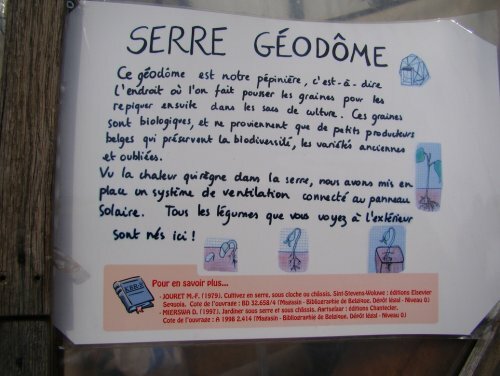 SERRE GÉODÔME
Ce géodôme est notre pépinière, c'est-à-dire
l'endroit où l'on fait pousser les graines pour les
repiquer ensuite dans les sacs de culture. Ces graines
sont biologiques, et ne proviennent que de petits producteurs
belges qui préservent la biodiversité, les variétés anciennes
et oubliées.
Vu la chaleur qui règne dans la serre, nous avons mis en
place un système de ventilation connecté au panneau
solaire. Tous les légumes que vous voyez à l'extérieur
sont nés ici !
KBR
Pour en savoir plus...
- JOURET M.-F. (1979). Cultivez en serre, sous cloche ou châssis, Sint-Stevens-Woluwe : éditions Elsevier
Sequoia. Cote de l'ouvrage : BD 32.658/4 (Magasin - Bibliographie de Belgique, Dépôt légal - Niveau 0)
- MIERSWA D. (1997). Jardiner sous serre et sous châssis, Aartselaar : éditions Chantecler.
Cote de l'ouvrage : A 1998 2.414 (Magasin - Bibliographie de Belgique, Dépôt légal - Niveau 0)